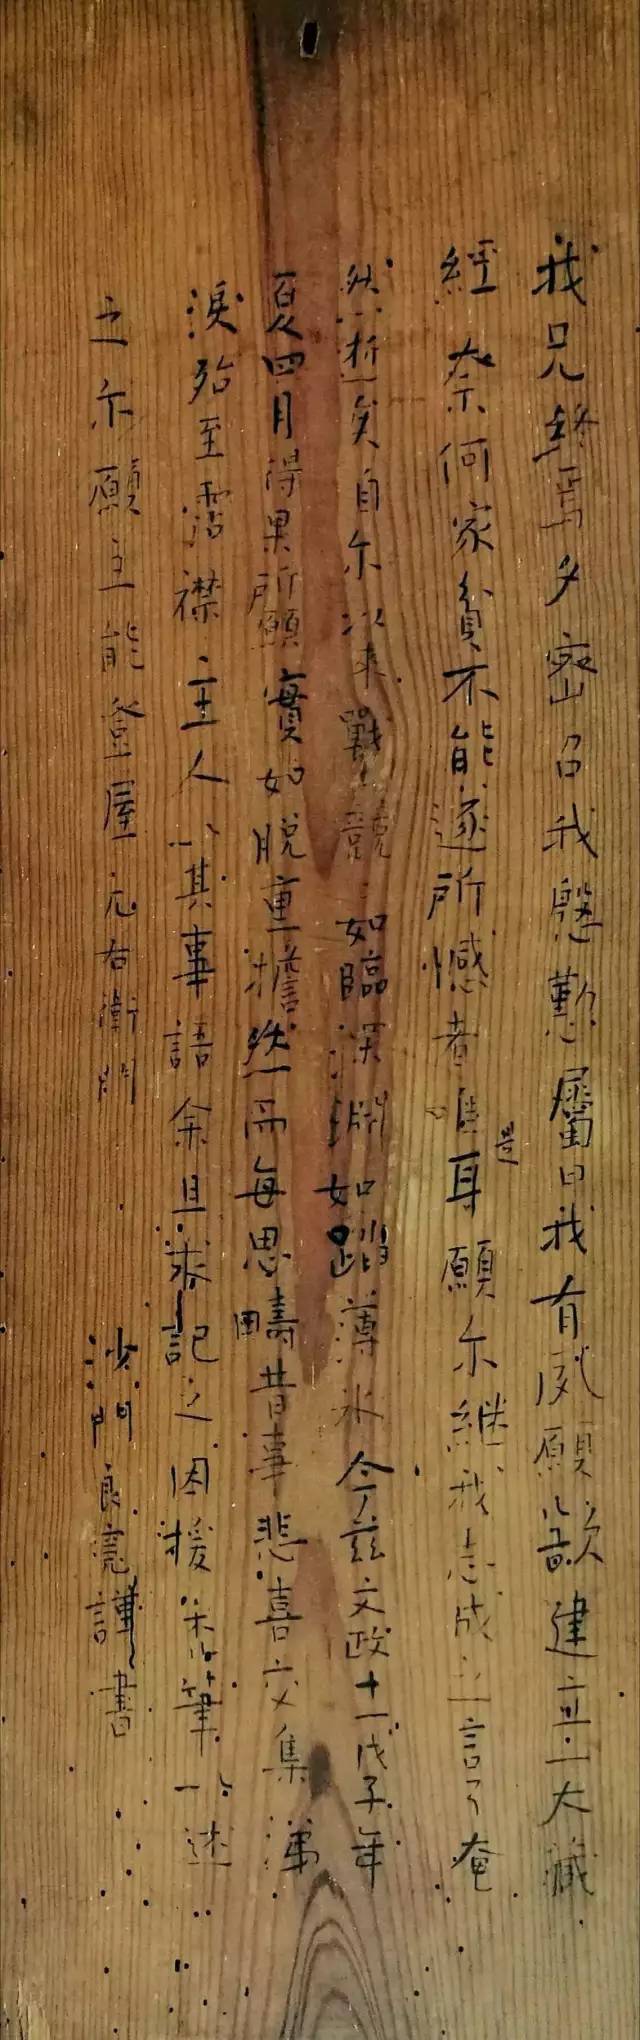 我兄終焉夕密召我慇懃屬曰我有夙願欲建立一大藏
經奈何家貧不能遂所憾者唯是耳願尓継我志成之言了奄
然逝矣自尓以来戰々兢々如臨深淵如踏薄氷今茲文政十一戊子年
夏四月得果所願實如脱重擔然而每思疇昔事悲喜交集涕
淚殆至霑襟主人以其事語余且求記之因援禿筆以述
之尓願主能登屋元右衛門 沙門良寛謹書